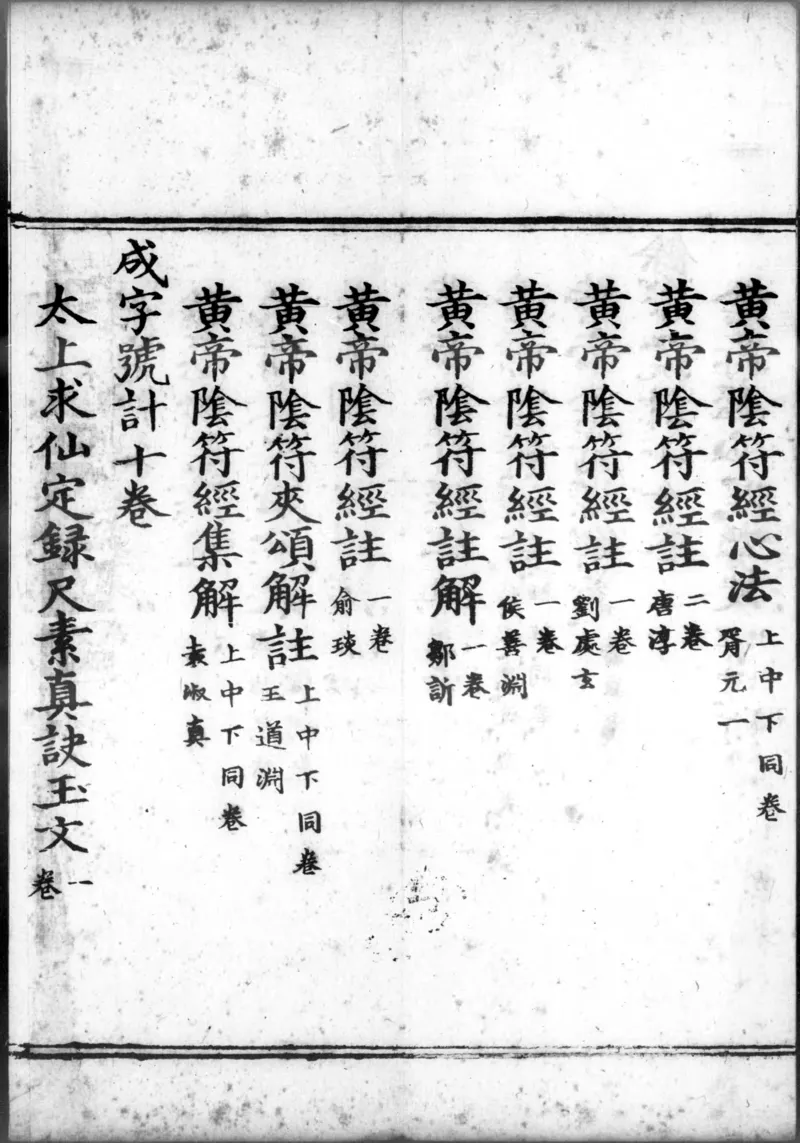 黄帝陰符經心法 上中下同卷 胥元一
黄帝陰符經註 二卷 唐淳
黄帝陰符經註 一卷 劉處玄
黄帝陰符經註 一卷 侯善淵
黄帝陰符經註解 一卷 鄒訢
黄帝陰符經註 一卷 俞琰
黄帝陰符夾頌解註 上中下同卷 王道淵
黄帝陰符經集解 上中下同卷 袁淑真
成字號計十卷
太上求仙定録尺素真訣玉文 一卷